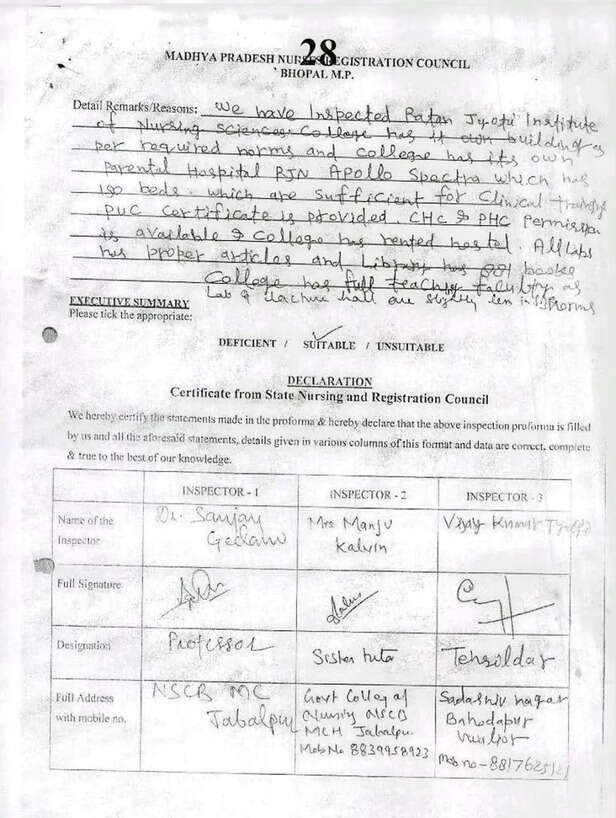 28
MADHYA PRADESH NURSES REGISTRATION COUNCIL
BHOPAL M.P.
Detail Remarks/Reasons: We have Inspected Ratan Jyoti Institute
of Nursing Sciences. College has it own building as
per required norms and college has its own
Parental Hospital RJN Apollo Spectra which has
150 beds. which are sufficient for Clinical
PUC Certificate is provided. CHC & PHC Permission
is available & College has rented hostel. All labs
has proper articles and Library has 881 books
College has full teaching faculty as
Lab & are slightly less in norms
EXECUTIVE SUMMARY
Please tick the appropriate:
DEFICIENT / SUITABLE / UNSUITABLE
DECLARATION
Certificate from State Nursing and Registration Council
We hereby certify the statements made in the proforma & hereby declare that the above inspection proforma is filled
by us and all the aforesaid statements, details given in various columns of this format and data are correct, complete
& true to the best of our knowledge.
INSPECTOR - 1 INSPECTOR - 2 INSPECTOR - 3
Name of the Inspector
Dr. Sanjay
Mrs Manju Kalvin
Vijay Kumar
Full Signature
Designation Professor Sister tutor Tehsildar
Full Address with mobile no.
NSCB MC Jabalpur
Govt College of Nursing NSCB MCH Jabalpur Mob No 8839958923
Sadashiv nagar Bahodapur
Mob no -